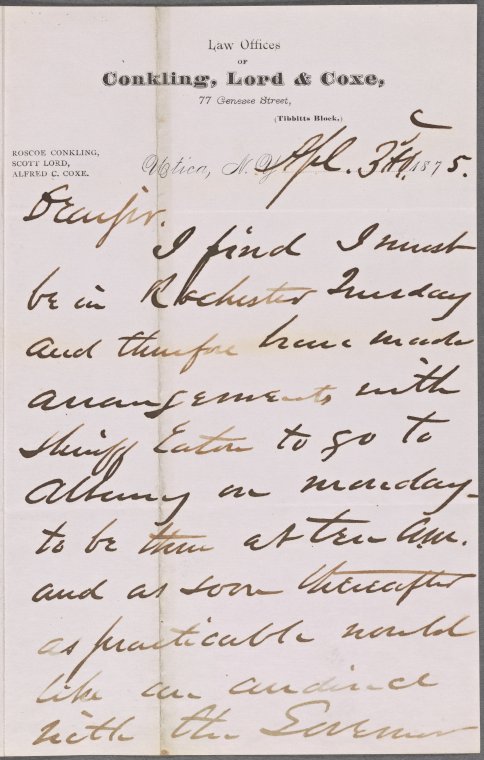 Law Offices
OF
Conkling, Lord & Coxe,
77 Genesee Street,
(Tibbitts Block,)
ROSCOE CONKLING,
SCOTT LORD,
ALFRED C. COXE.
Utica, N. Y. Apl. 3d 1875.
Dear Sir.
I find I must
be in Rochester Tuesday
and therefore have made
arrangements with
Sheriff Eaton to go to
Albany on monday-
to be there at ten A.M.
and as soon thereafter
as practicable would
like an audience
with the Governor